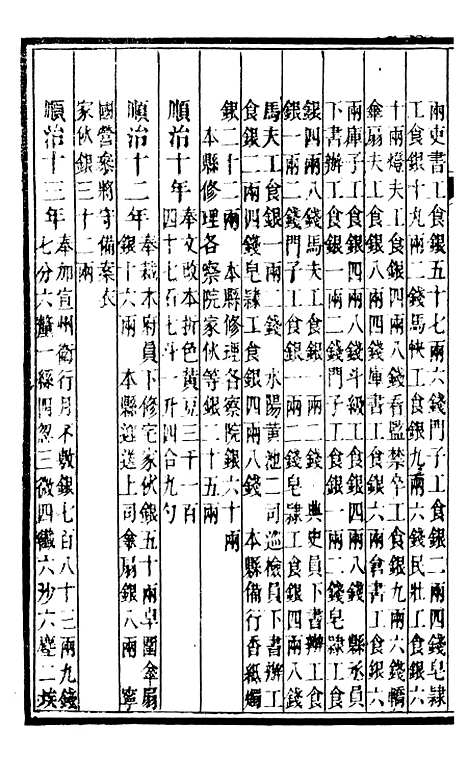 兩吏書工食銀五十七兩六錢門子工食銀二兩四錢皂隷
工食銀十九兩二錢馬快工食銀九兩六錢民壯工食銀六
十兩燈夫工食銀四兩八錢看監禁卒工食銀九兩六錢轎
傘扇夫工食銀八兩四錢庫書工食銀六兩倉書工食銀六
兩庫子工食銀四兩八錢斗級工食銀四兩八錢 縣丞員
下書辦工食銀一兩二錢門子工食銀一兩二錢皂隷工食
銀四兩八錢馬夫工食銀一兩二錢 典史員下書辦工食
銀一兩二錢門子工食銀一兩二錢皂隷工食銀四兩八錢
馬夫工食銀一兩二錢 水陽黃池二司巡檢員下書辦工
食銀二兩四錢皂隷工食銀四兩八錢 本縣備行香紙燭
銀二十二兩 本縣修理各察院銀六十兩
本縣修理各察院家伙等銀二十五兩
順治十年奉文改本折色黃豆三千一百
四十七石七斗一升四合九勺
順治十二年奉裁本府員下修宅家伙銀五十兩皂圍傘扇
銀十六兩 本縣迎送上司傘扇銀八兩 寧
國營參將守備案衣
家伙銀三十二兩
順治十三年奉加宣州衛行月不敷銀七百八十三兩九錢
七分六釐一絲四忽三微四纖六沙六塵二埃